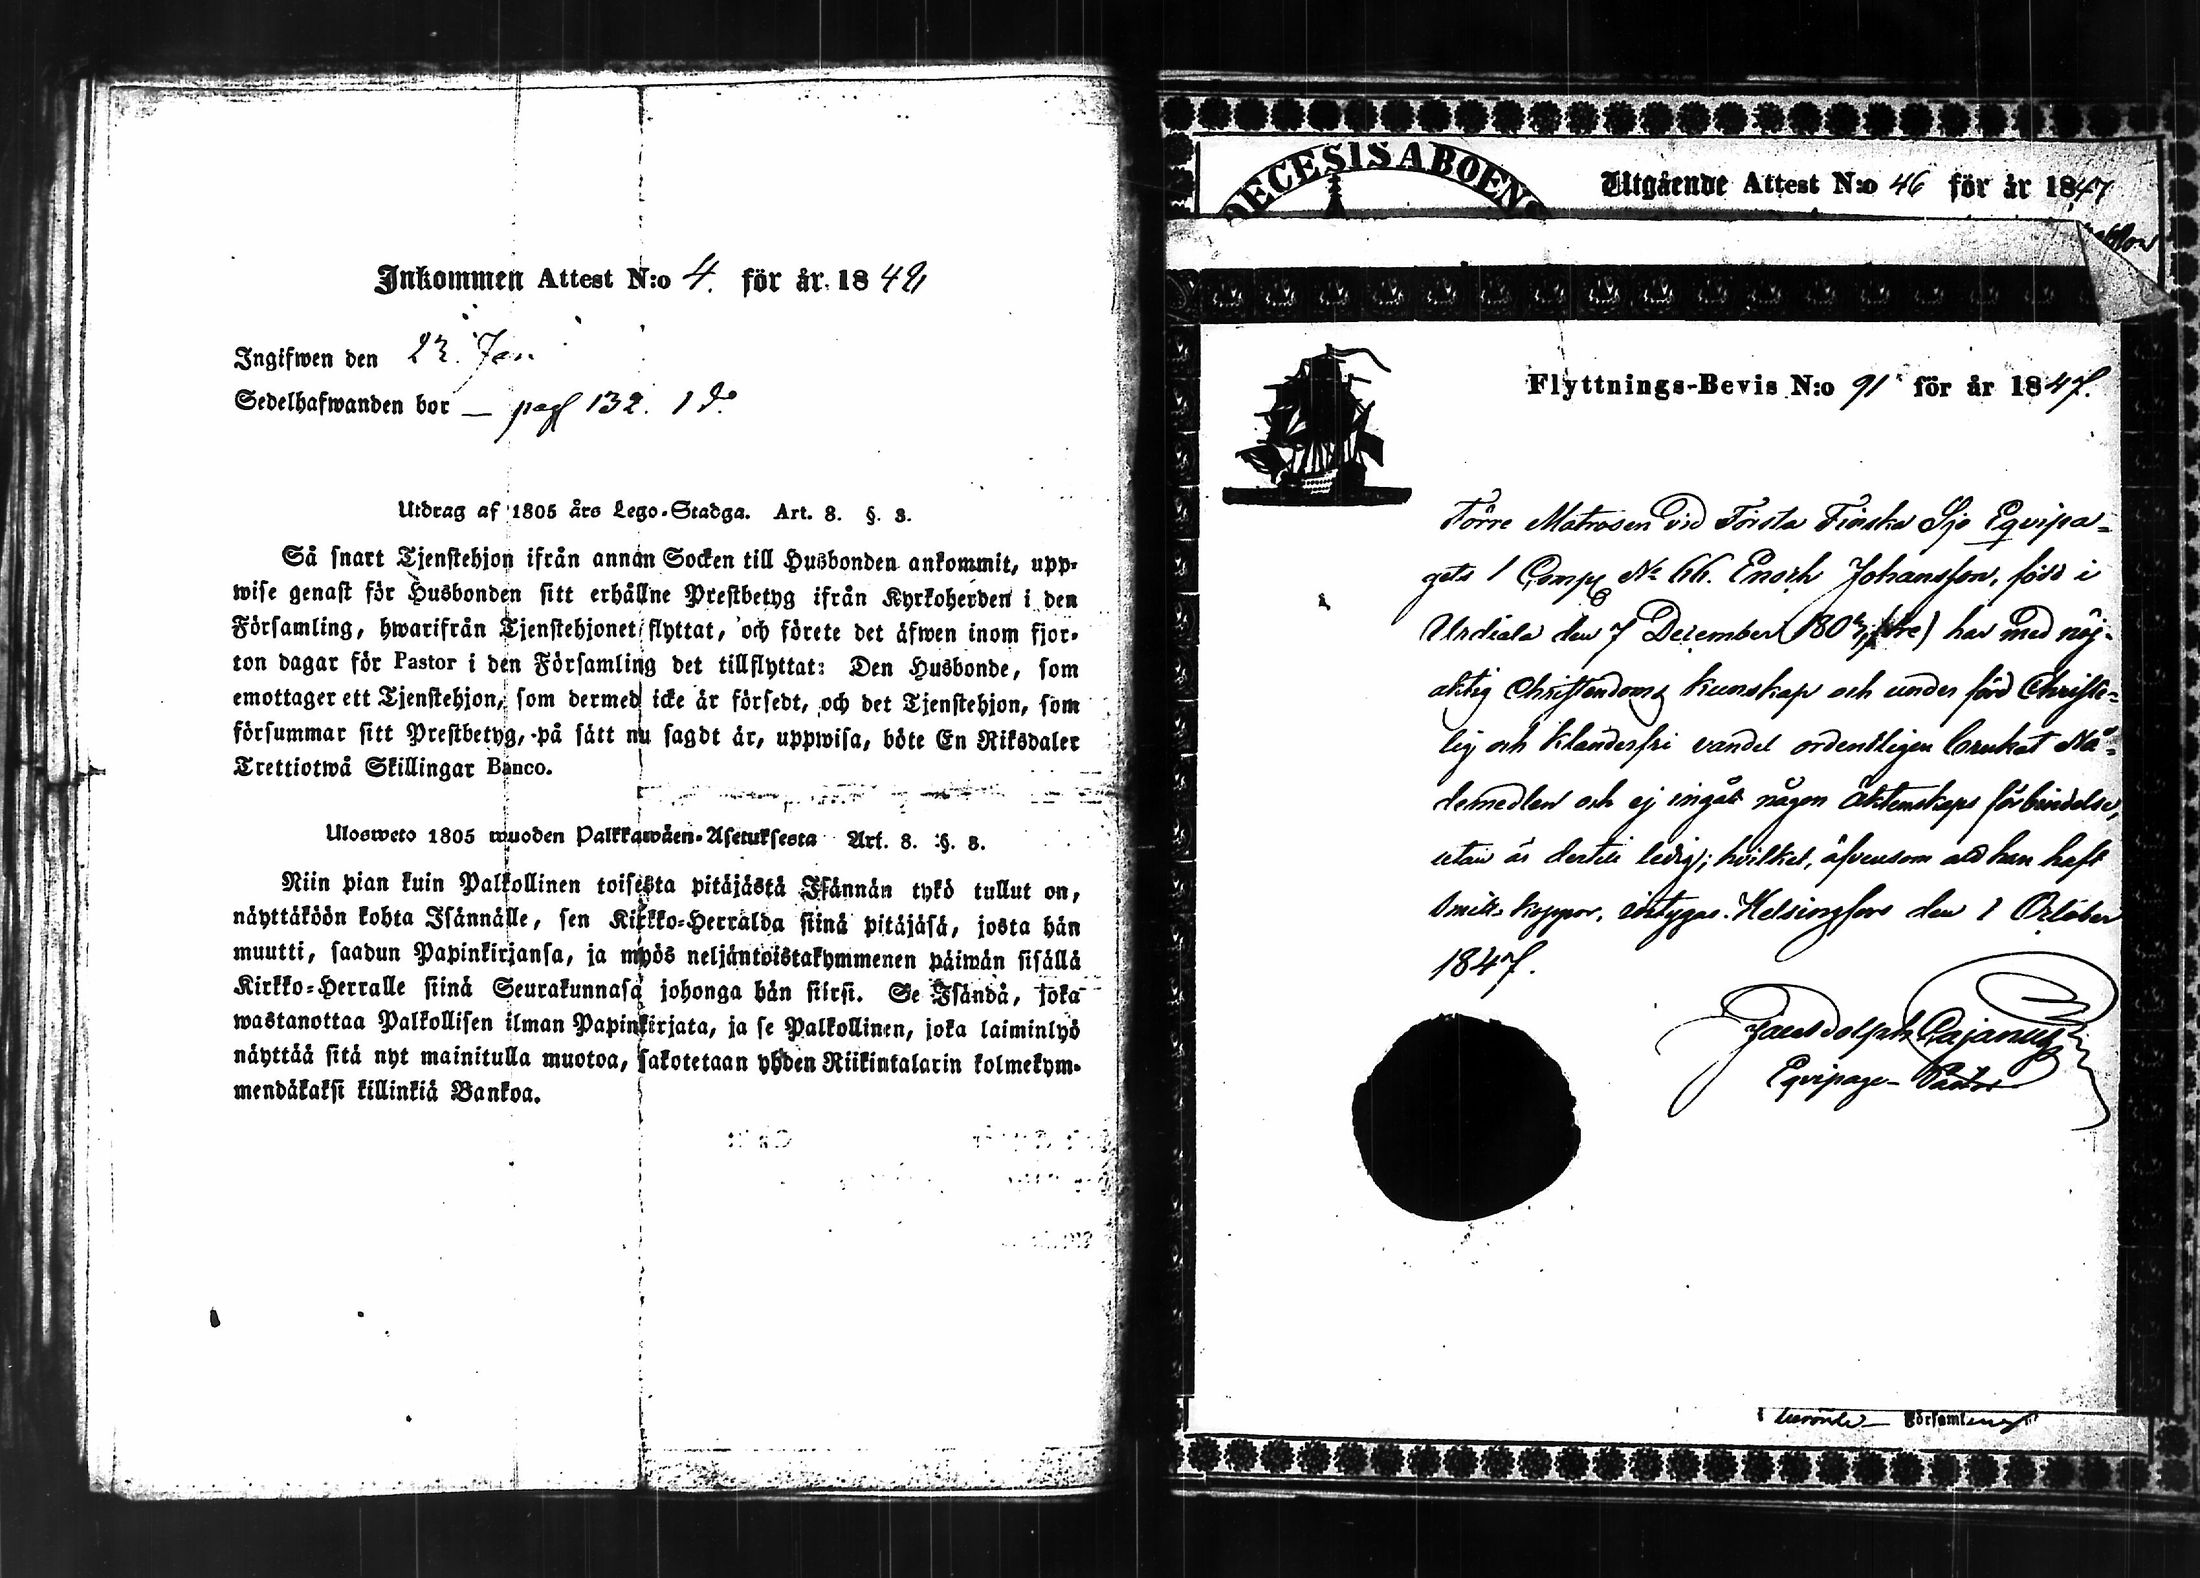 Inkommen Attest N:o 4. för år 1842
Ingifwen den 23. Jan
Sedelhafwanden bor — pag 132.
Utdrag af 1805 års Lego-Stadga. Art. 8. §. 3.
Så snart Tjenstehjon ifrån annan Socken till Husbonden ankommit, upp-
wise genast för Husbonden sitt erhållne Prestbetyg ifrån Kyrkoherden i den
Församling, hwarifrån Tjenstehjonet flyttat, och förete det äfwen inom fjor-
ton dagar för Pastor i den Församling det tillflyttat: Den Husbonde, som
emottager ett Tjenstehjon, som dermed icke är försedt, och det Tjenstehjon, som
försummar sitt Prestbetyg, på sätt nu sagdt är, uppwisa, böte En Riksdaler
Trettiotwå Skillingar Banco.
Ulosweto 1805 wuoden Palkkawäen-Asetuksesta Art. 8. §. 3.
Niin pian kuin Palkollinen toisesta pitäjästä Isännän tykö tullut on,
näyttäköön kohta Isännälle, sen Kirkko-Herralda siinä pitäjäsä, josta hän
muutti, saadun Papinkirjansa, ja myös neljäntoistakymmenen päiwän sisällä
Kirkko-Herralle siinä Seurakunnasa johonga hän siirsi. Se Isändä, joka
wastanottaa Palkollisen ilman Papinkirjata, ja se Palkollinen, joka laiminlyö
näyttää sitä nyt mainitulla muotoa, sakotetaan yhden Riikintalarin kolmekym-
mendäkaksi killinkiä Bankoa.
DECESIS ABOENS
Utgående Attest N:o 46 för år 1847
Flyttnings-Bevis N:o 91 för år 1847.
Förre Matrosen vid Första Finska Sjö Eqvipa-
gets 1 Comp. No 66. Enoch Johansson, född i
Urdiala den 7 December 180 har med nöj-
aktig Christendoms kunskap och under förd Christe-
lig och klanderfri vandel ordentligen brukat Nå-
demedlen och ej ingått någon äktenskaps förbindelse,
utan är dertill ledig; hvilket, äfvensom att han haft
Smittkoppor, intygas. Helsingfors den 1 October
1847.
Cajanus
Eqvipage-Pastor
Församling